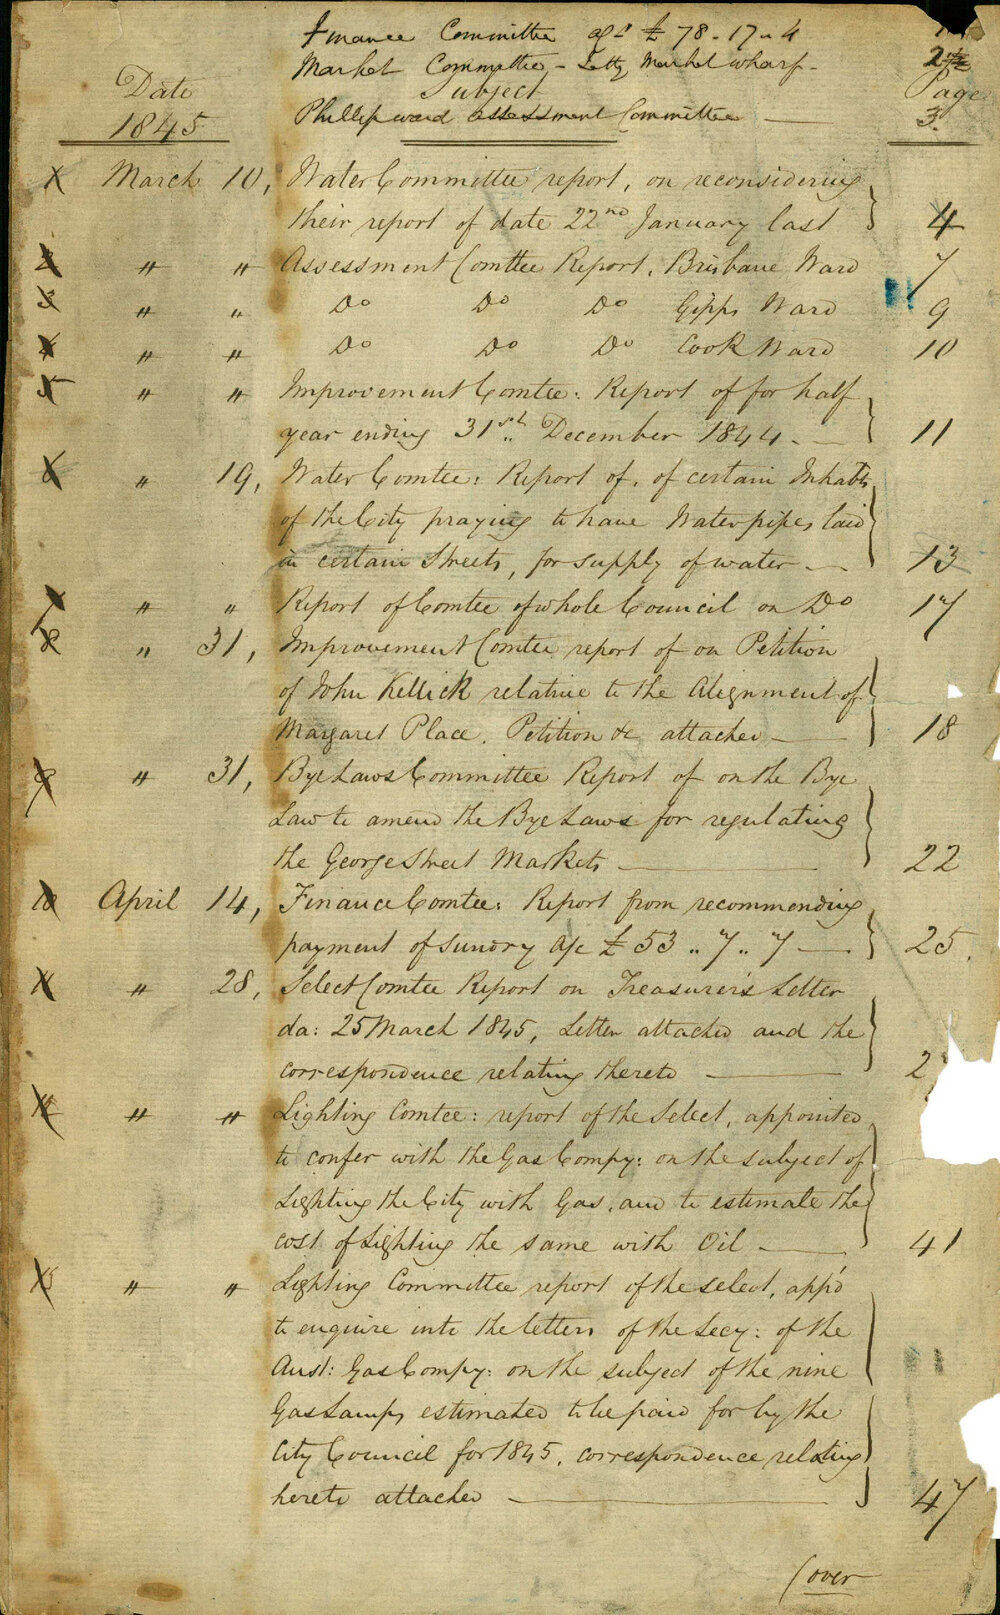 Finance Committee a/c £ 78-17-4
Market Committee - Letg Market wharf - 2
Date Subject Page
1845 Phillip ward assessment Committee — 3.
March 10, Water Committee report, on reconsidering
their report of date 22nd January last 4
" " Assessment Comttee Report, Brisbane Ward 7
" " Do Do Do Gipps Ward 9
" " Do Do Do Cook Ward 10
" " Improvement Comtee: Report of for half
year ending 31st December 1844 - — 11
" 19, Water Comtee: Report of, of certain Inhabts
of the City praying to have Water pipes laid
in certain Streets, for supply of water — 13
" " Report of Comtee of whole Council on Do 17
8 " 31, Improvement Comtee report of on Petition
of John Kellick relative to the Alignment of
Margaret Place. Petition &c attached — 18
9 " 31, Bye Laws Committee Report of on the Bye
Law to amend the Bye Laws for regulating
the George Street Markets — 22
10 April 14, Finance Comtee: Report from recommending
payment of sundry a/c £ 53 .. 7 .. 7 — 25.
" 28, Select Comtee Report on Treasurer's Letter
da: 25 March 1845, Letter attached and the
correspondence relating thereto — 2
" " Lighting Comtee: report of the Select, appointed
to confer with the Gas Compy: on the subject of
Lighting the City with Gas, and to estimate the
cost of Lighting the same with Oil — 41
" " Lighting Committee report of the select, appd
to enquire into the letters of the Secy: of the
Aust: Gas Compy: on the subject of the nine
Gas Lamps estimated to be paid for by the
City Council for 1845, correspondence relating
hereto attached — 47
(over